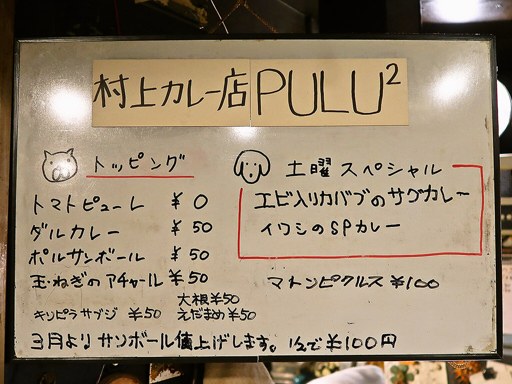 村上カレー店 PULU²
トッピング
トマトピューレ ¥0
ダルカレー ¥50
ポルサンボール ¥50
玉ねぎのアチャール ¥50
キンピラサブジ ¥50
大根¥50
えだまめ¥50
土曜スペシャル
エビ入りカバブのサグカレー
イワシのSPカレー
マトンピクルス ¥100
3月よりサンボール値上げします。1/2で¥100円